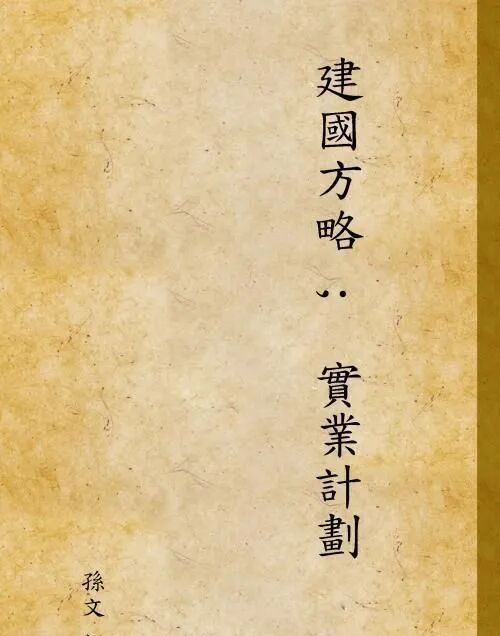 建國方略；實業計劃
孫文